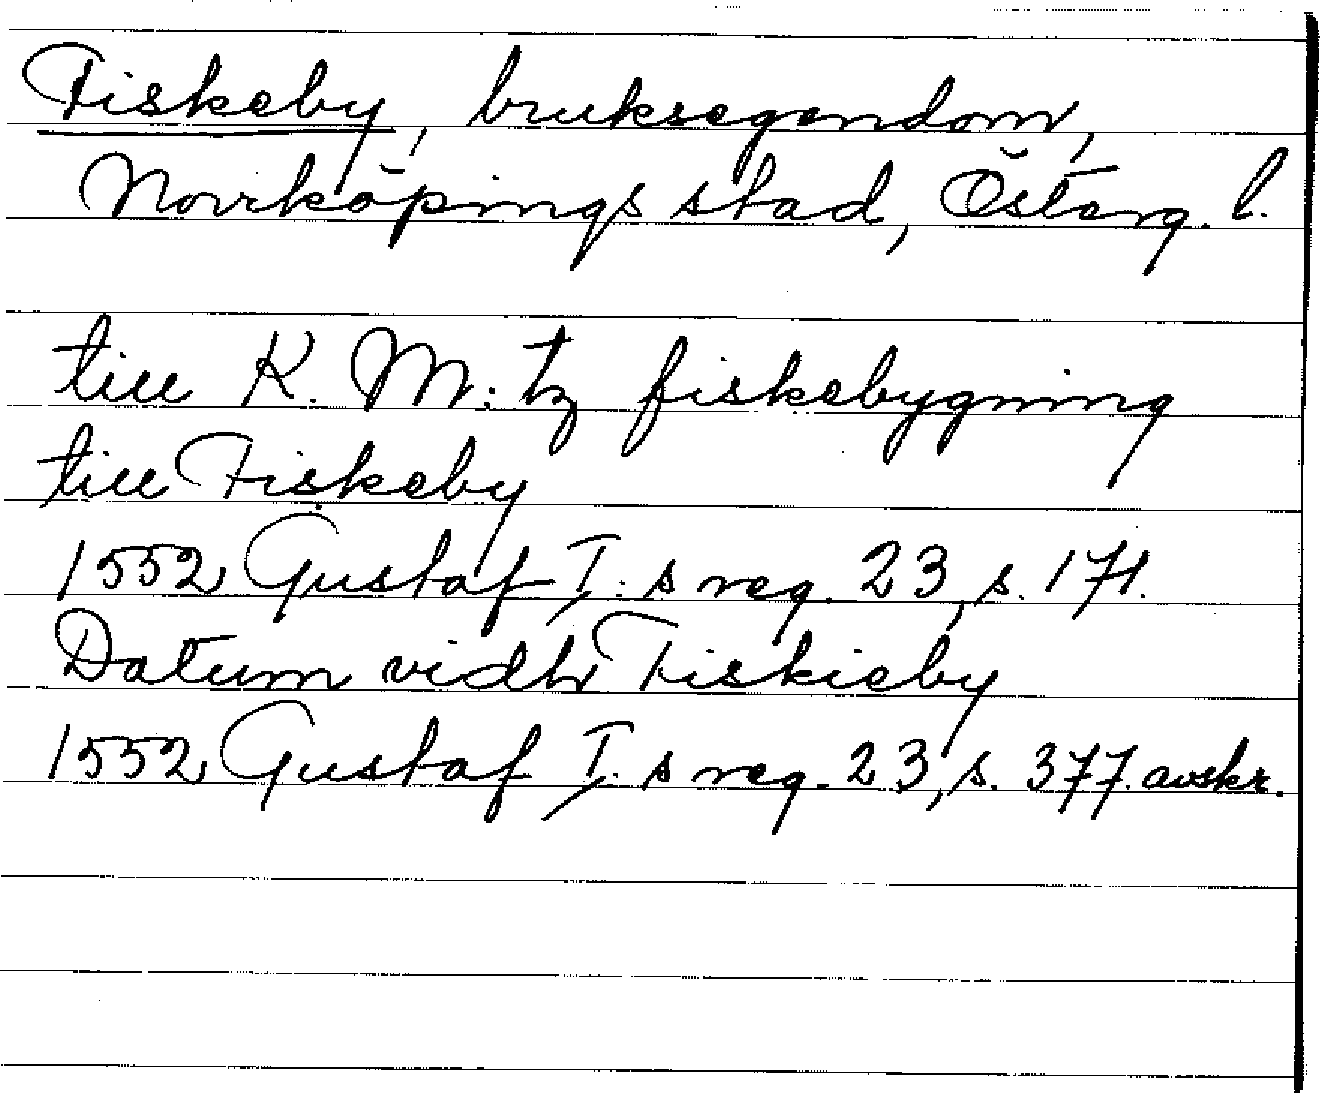 Fiskeby, bruksegendom,
Norrköpings stad, Österg. l.
till K. M:tz fiskebygning
till Fiskeby
1552 Gustaf I:s reg. 23, s. 171.
Datum vidh Fiskieby
1552 Gustaf I:s reg. 23, s. 377. avskr.